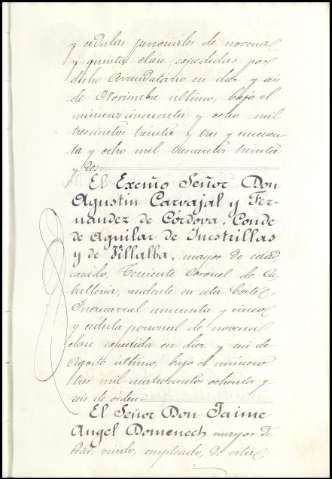 y cédulas personales de novena
y quinta clase, expedidas por
dicho Arrendatario en diez y seis
de Noviembre último, bajo el
número cincuenta y ocho mil
trescientos treinta y tres y cincuen
ta y ocho mil trescientos treinta
y dos.
El Excmo Señor Don
Agustin Carvajal y Fer-
nandez de Córdova, Conde
de Aguilar de Inestrillas
y de Villalba, mayor de edad
casado, Teniente Coronel de Ar
tillería, en esta Corte
cincuenta y cinco
y cédula personal de novena
clase expedida en diez y seis de
Agosto último, bajo el número
tres mil cuatrocientos ochenta y
seis de orden.
El Señor Don Jaime
Angel Domenech, mayor de
edad, viudo, empleado, de esta